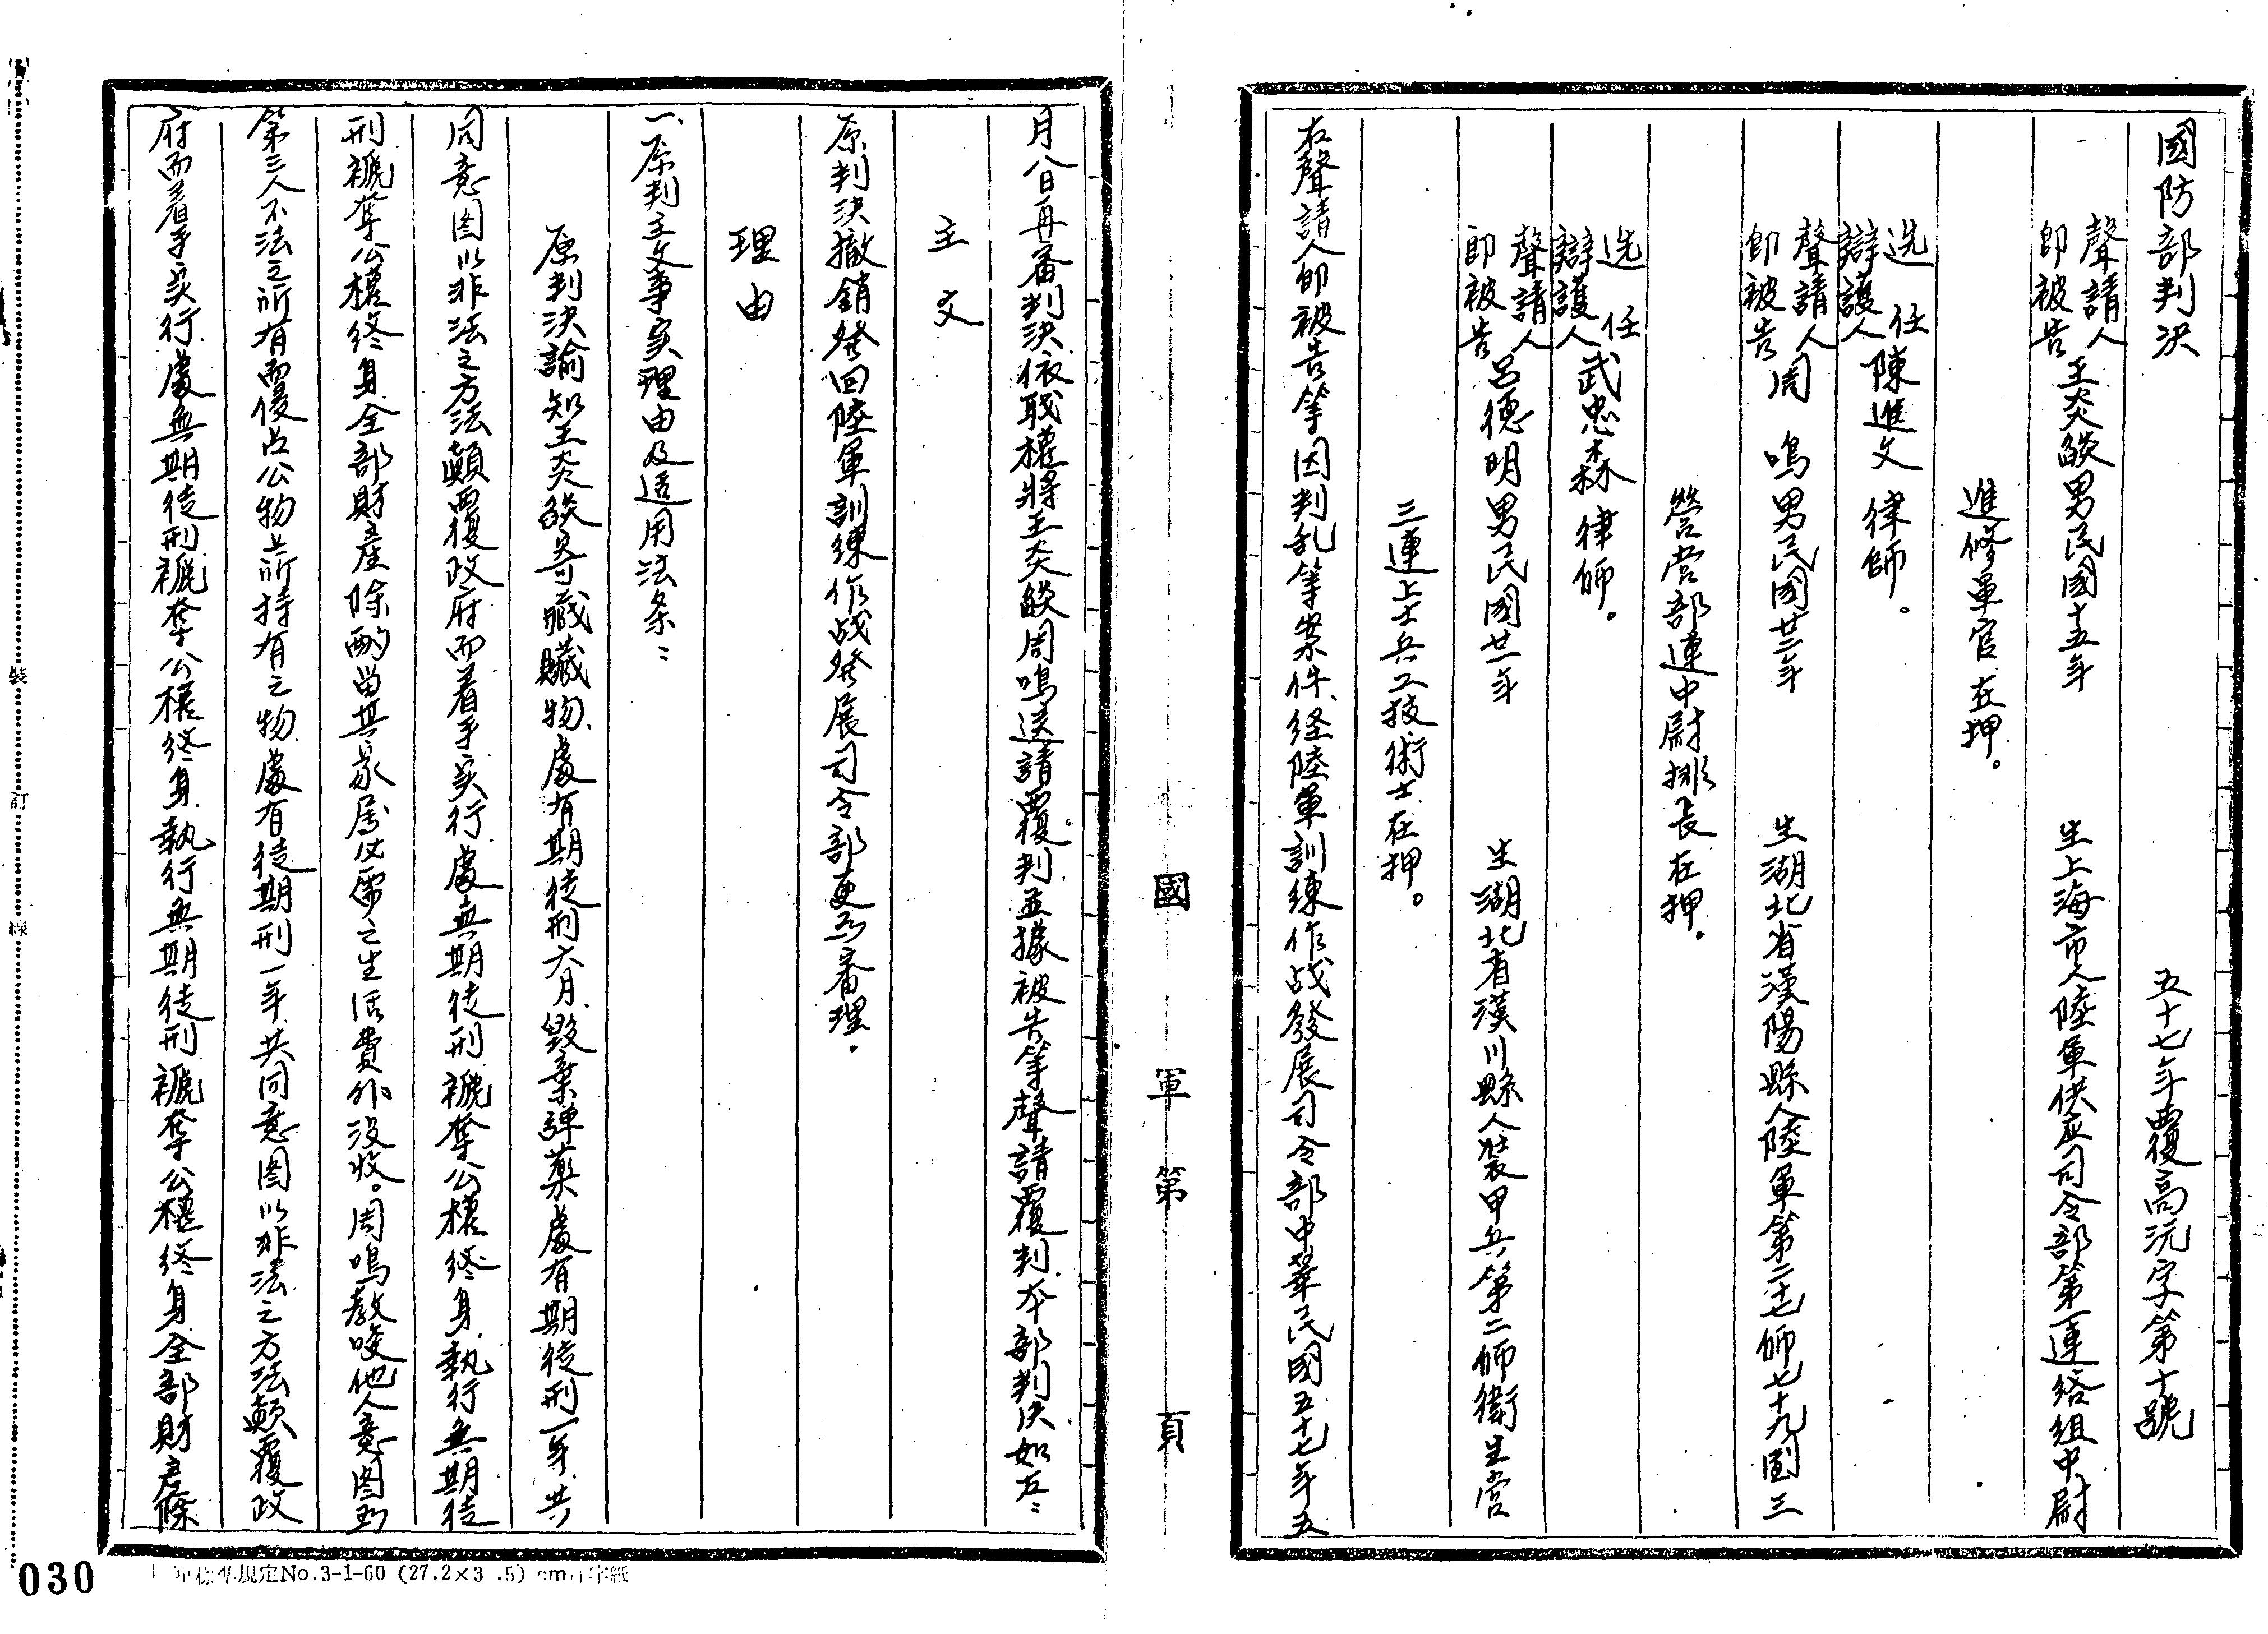 國防部判決
五十七年覆高沅字第十號
聲請人
即被告
王炎燄男民國十五年 生上海市人陸軍供应司令部第一連絡組中尉
進修軍官在押。
选任
辯護人
陳進文律師。
聲請人
即被告
周 鳴男民國廿二年 生湖北省漢陽縣人陸軍第二十七師七十九團三
營营部連中尉排長在押。
选任
辯護人
武忠森律師。
聲請人
即被告
呂德明男民國廿一年 生湖北省漢川縣人裝甲兵第二師衛生营
三連上士兵工技術士在押。
右聲請人即被告等因判乱等案件、経陸軍訓練作战發展司令部中華民國五十七年五
月八日再審判決、依职權將王炎燄周鳴送請覆判並據被告等聲請覆判、本部判決如左：
主 文
原判決撤銷発回陸軍訓練作战発展司令部更为審理。
理 由
一、原判主文事实理由及适用法条：
原判決諭知王炎燄寄贓贓物、處有期徒刑六月、毀棄弹薬處有期徒刑一年、共
同意图以非法之方法顛覆政府而着手实行、處無期徒刑、褫奪公權終身、執行無期徒
刑褫奪公權終身、全部財產除酌留其家属必需之生活費外没收。周鳴教唆他人意图为
第三人不法之所有而侵占公物上所持有之物、處有徒期刑一年、共同意图以非法之方法顛覆政
府而着手实行、處無期徒刑褫奪公權終身、執行無期徒刑褫奪公權終身、全部財產除
國 軍 第 頁
裝 訂 線
規定No.3-1-60 (27.2×3 .5) cm
030